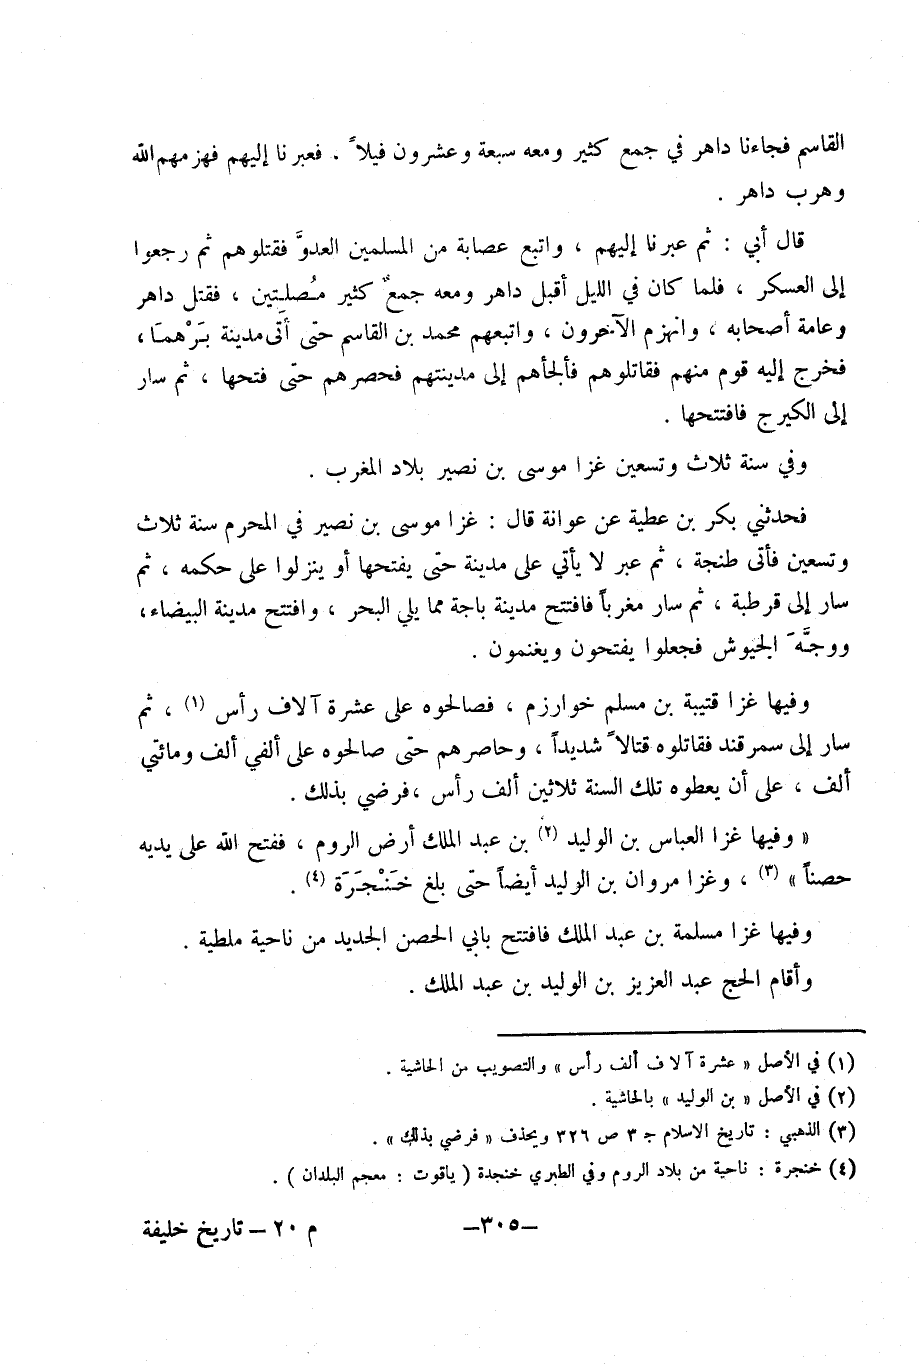 القاسم فجاءنا داهر في جمع كثير ومعه سبعة وعشرون فيلاً . فعبرنا إليهم فهزمهم الله
وهرب داهر .
قال أبي : ثم عبرنا إليهم ، واتبع عصابة من المسلمين العدوَّ فقتلوهم ثم رجعوا
إلى العسكر ، فلما كان في الليل أقبل داهر ومعه جمعٌ كثير مُصلِتِين ، فقتل داهر
وعامة أصحابه ، وانهزم الآخرون ، واتبعهم محمد بن القاسم حتى أتى مدينة بَرْهمَا ،
فخرج إليه قوم منهم فقاتلوهم فألجأهم إلى مدينتهم فحصرهم حتى فتحها ، ثم سار
إلى الكيرج فافتتحها .
وفي سنة ثلاث وتسعين غزا موسى بن نصير بلاد المغرب .
فحدثني بكر بن عطية عن عوانة قال : غزا موسى بن نصير في المحرم سنة ثلاث
وتسعين فأتى طنجة ، ثم عبر لا يأتي على مدينة حتى يفتحها أو ينزلوا على حكمه ، ثم
سار إلى قرطبة ، ثم سار مغرباً فافتتح مدينة باجة مما يلي البحر ، وافتتح مدينة البيضاء،
ووجَّهَ الجيوش فجعلوا يفتحون ويغنمون .
وفيها غزا قتيبة بن مسلم خوارزم ، فصالحوه على عشرة آلاف رأس (١) ، ثم
سار إلى سمرقند فقاتلوه قتالاً شديداً ، وحاصرهم حتى صالحوه على ألفي ألف ومائتي
ألف ، على أن يعطوه تلك السنة ثلاثين ألف رأس ،فرضي بذلك .
« وفيها غزا العباس بن الوليد (٢) بن عبد الملك أرض الروم ، ففتح الله على يديه
حصناً » (٣) ، وغزا مروان بن الوليد أيضاً حتى بلغ خَنْجَرَة (٤) .
وفيها غزا مسلمة بن عبد الملك فافتتح بابي الحصن الجديد من ناحية ملطية .
وأقام الحج عبد العزيز بن الوليد بن عبد الملك .
(١) في الأصل « عشرة آلاف ألف رأس » والتصويب من الحاشية .
(٢) في الأصل « بن الوليد » بالحاشية .
(٣) الذهبي : تاريخ الاسلام جـ ٣ ص ٣٢٦ ويحذف « فرضي بذلك » .
(٤) خنجرة : ناحية من بلاد الروم وفي الطبري خنجدة ( ياقوت : معجم البلدان ) .
–٣٠٥–
م ٢٠ – تاريخ خليفة